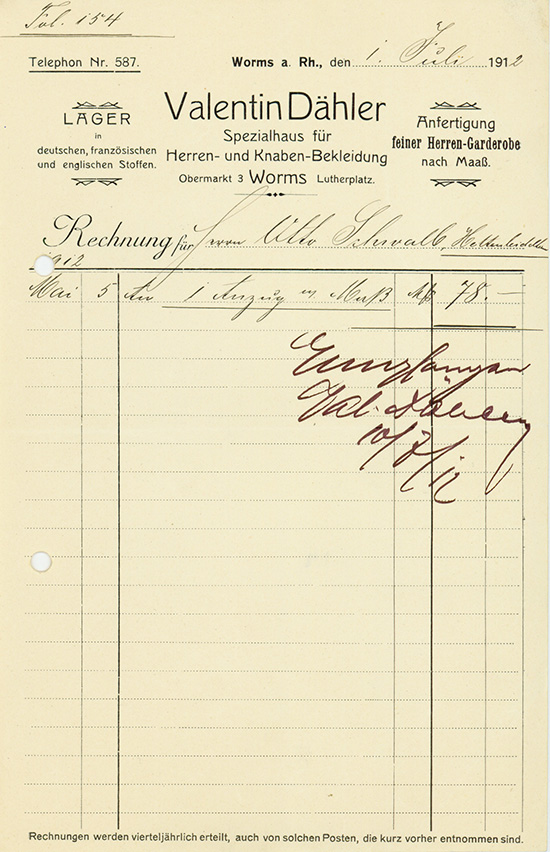 Fol. 154
Telephon Nr. 587.
Worms a. Rh., den 1. Juli 1912
LAGER
in
deutschen, französischen
und englischen Stoffen.
Valentin Dähler
Spezialhaus für
Herren- und Knaben-Bekleidung
Obermarkt 3 Worms Lutherplatz.
Anfertigung
feiner Herren-Garderobe
nach Maaß.
Rechnung für Herrn Otto Schwalb,
1912
Mai 5 An 1 Anzug n Maß Mk 78.—
Empfangen
Val. Dähler
10/7/12
Rechnungen werden vierteljährlich erteilt, auch von solchen Posten, die kurz vorher entnommen sind.